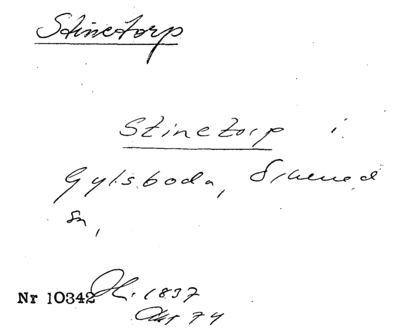 Stinetorp
Stinetorp i
Gylsboda,
sn,
Nr 10342 Hl. 1837
Akt 74